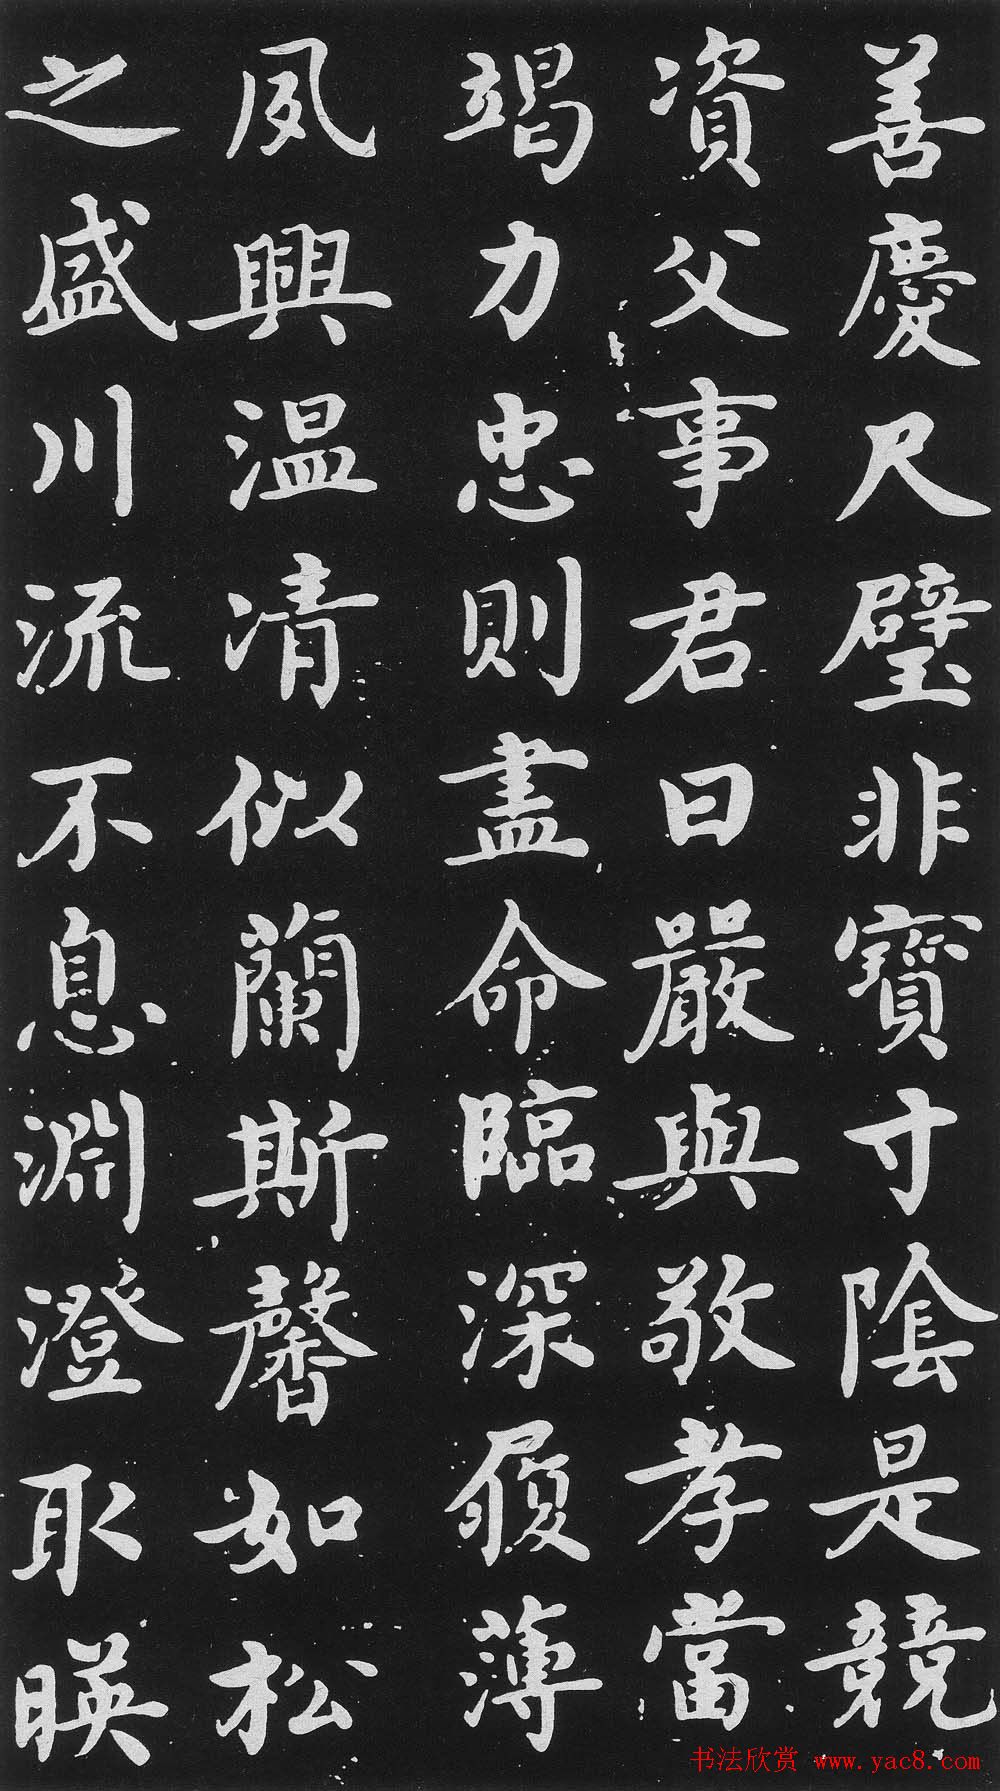 善慶尺璧非寳寸陰是競
資父事君曰嚴與敬孝當
竭力忠則盡命臨深履薄
夙興温凊似蘭斯馨如松
之盛川流不息淵澄取暎
书法欣赏 www.yac8.com